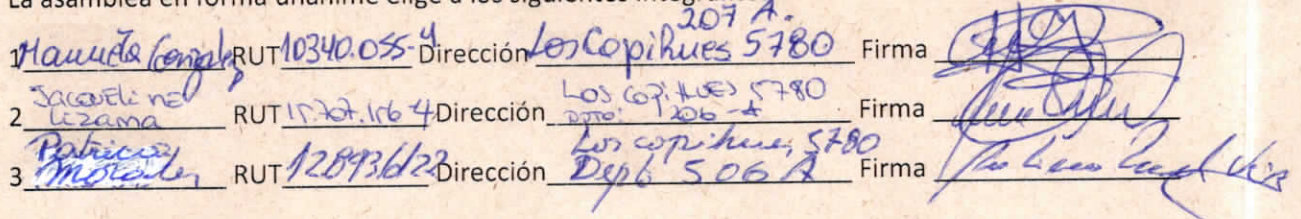 La asamblea en forma unánime elige a los siguientes
207 A.
1 Manuela Gonzalez RUT 10340.055-4 Dirección Los Copihues 5780 Firma
2 Jacqueline Lizama RUT 15.707.156-4 Dirección Los copihues 5780 Dpto: 206-A Firma
3 Patricia Morales RUT Dirección Los copihues 5780 Depto 506 A Firma